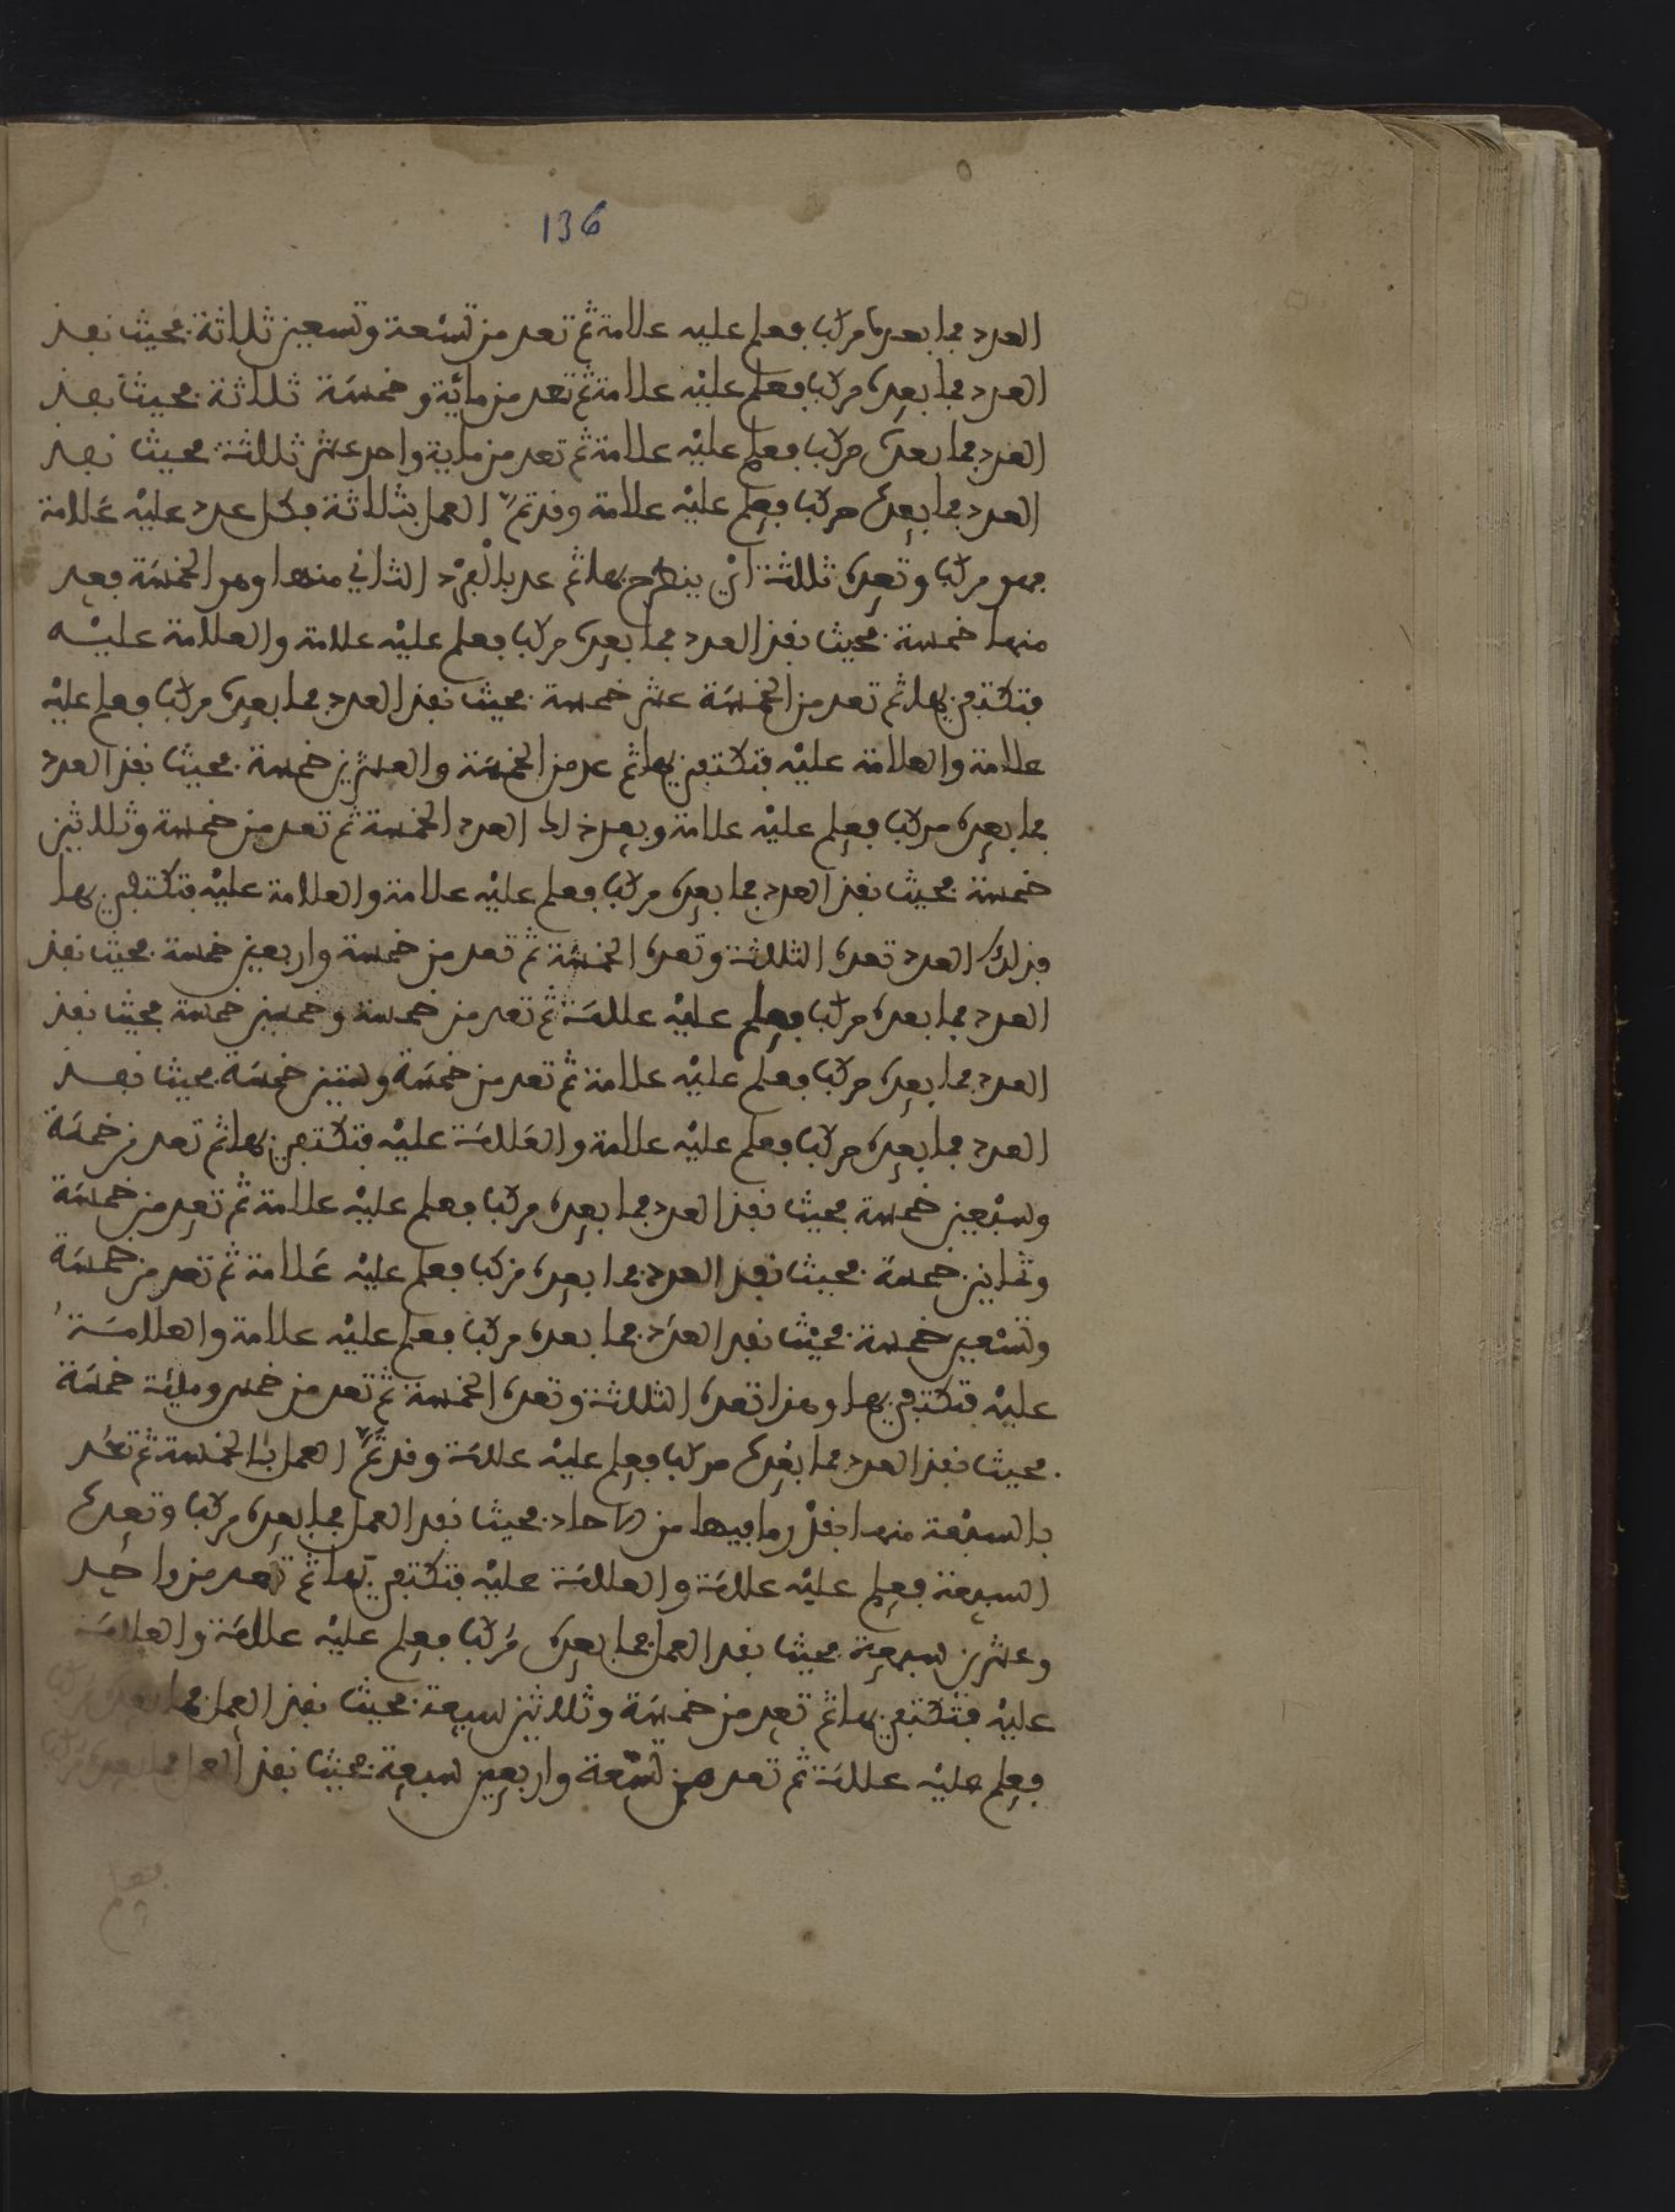 136
العدد فما بعده مركب فعلم عليه علامة ثم تعد من تسعة وتسعين ثلاثة فحيث نفذ
العدد فما بعده مركب فعلم عليه علامة ثم تعد من مائة وخمسة ثلاثة فحيث نفذ
العدد فما بعده مركب فعلم عليه علامة ثم تعد من ماية واحد عشر ثلثة فحيث نفذ
العدد فما بعده مركب فعلم عليه علامة وقد تم العمل بثلاثة فكل عدد عليه علامة
فهو مركب وتعده ثلثة اي ينطرح بها ثم عد بالفرد الثاني منها وهو الخمسة فعد
منها خمسة فحيث نفذ العدد فما بعده مركب فعلم عليه علامة والعلامة عليه
فتكتفي بها ثم تعد من الخمسة عشر خمسة فحيث نفذ العدد فما بعده مركب فعلم عليه
علامة والعلامة عليه فتكتفي بها ثم عد من الخمسة والعشرين خمسة فحيث نفذ العدد
فما بعده مركب فعلم عليه علامة وبعد ذلك العدد الخمسة ثم تعد من خمسة وثلاثين
خمسة فحيث نفذ العدد فما بعده مركب فعلم عليه علامة والعلامة عليه فتكتفي بها
فذلك العدد تعده الثلثة وتعده الخمسة ثم تعد من خمسة واربعين خمسة فحيث نفذ
العدد فما بعده مركب فعلم عليه علامة ثم تعد من خمسة وخمسين خمسة فحيث نفذ
العدد فما بعده مركب فعلم عليه علامة ثم تعد من خمسة وستين خمسة فحيث نفذ
العدد فما بعده مركب فعلم عليه علامة والعلامة عليه فتكتفي بها ثم تعد من خمسة
وسبعين خمسة فحيث نفذ العدد فما بعده مركب فعلم عليه علامة ثم تعد من خمسة
وثمانين خمسة فحيث نفذ العدد فما بعده مركب فعلم عليه علامة ثم تعد من خمسة
وتسعين خمسة فحيث نفد العدد فما بعده مركب فعلم عليه علامة والعلامة
عليه فتكتفي بها وهذا تعده الثلثة وتعده الخمسة ثم تعد من خمس ومائة خمسة
فحيث نفذ العدد فما بعده مركب فعلم عليه علامة وقد تم العمل بالخمسة ثم تعد
بالسبعة منها بقدر ما فيها من الاحاد فحيث نفد العمل فما بعده مركب وتعده
السبعة فعلم عليه علامة والعلامة عليه فتكتفي بها ثم تعد من واحد
وعشرين سبعة فحيث نفد العمل فما بعده مركب فعلم عليه علامة والعلامة
عليه فتكتفي بها ثم تعد من خمسة وثلاثين سبعة فحيث نفذ العمل فما بعده مركب
فعلم عليه علامة ثم تعد من تسعة واربعين سبعة فحيث نفذ العمل فما بعده مركب
فعلم